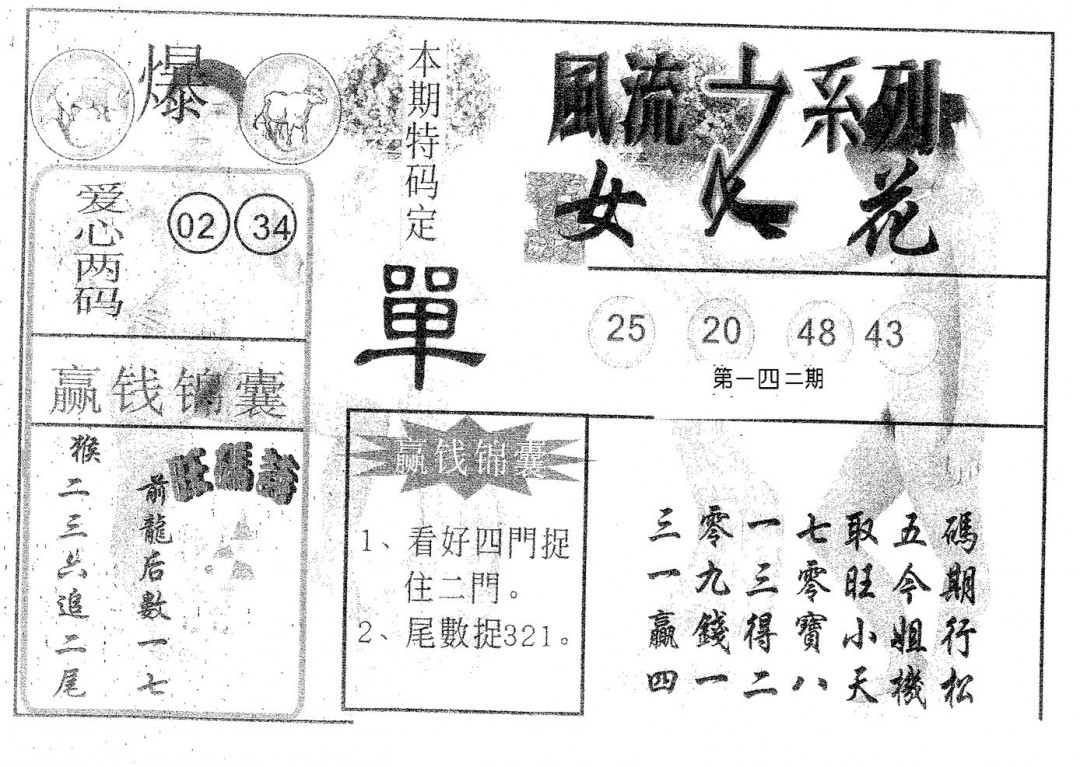 爆
爱心两码
02 34
赢钱锦囊
旺碼詩
前龍后數一七
猴二三六追二尾
本期特码定
單
風流之系列
女人花
25 20 48 43
第一四二期
赢钱锦囊
1、看好四門捉
住二門。
2、尾數捉321。
碼期行松
五今姐機
取旺小天
七零寶八
一三得二
零九錢一
三一贏四